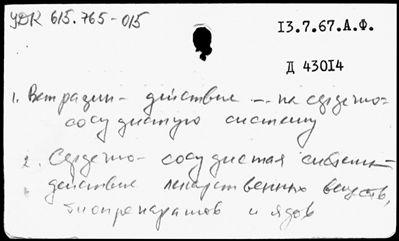 УДК 615.765-015
13.7.67.А.Ф.
Д 43014
1. Ветразин - действие - на сердечно-
сосудистую систему
2. Сердечно-сосудистая система -
действие лекарственных веществ,
биопрепаратов и ядов